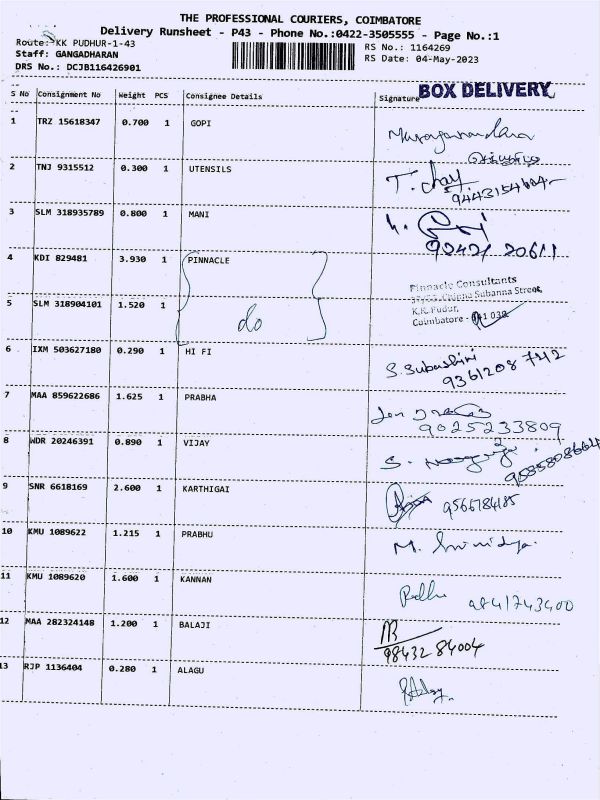 THE PROFESSIONAL COURIERS, COIMBATORE
Delivery Runsheet - P43 - Phone No.:0422-3505555 - Page No.:1
Route: KK PUDHUR-1-43
RS No.: 1164269
Staff: GANGADHARAN
RS Date: 04-May-2023
DRS No.: DCJB116426901
BOX DELIVERY
S No Consignment No Weight PCS Consignee Details Signature
1 TRZ 15618347 0.700 1 GOPI
2 TNJ 9315512 0.300 1 UTENSILS
9443154604
3 SLM 318935789 0.800 1 MANI
90421 20611
4 KDI 829481 3.930 1 PINNACLE
Pinnacle Consultants
Chinna Subanna Street,
K.K. Pudur,
Coimbatore - 641 038
5 SLM 318904101 1.520 1 do
6 IXM 503627180 0.290 1 HI FI S. Subashini
9361208742
7 MAA 859622686 1.625 1 PRABHA
9025233809
8 WDR 20246391 0.890 1 VIJAY
9585808664
9 SNR 6618169 2.600 1 KARTHIGAI 9566784185
10 KMU 1089622 1.215 1 PRABHU
11 KMU 1089620 1.600 1 KANNAN 9841743400
12 MAA 282324148 1.200 1 BALAJI
98432 84004
13 RJP 1136404 0.280 1 ALAGU